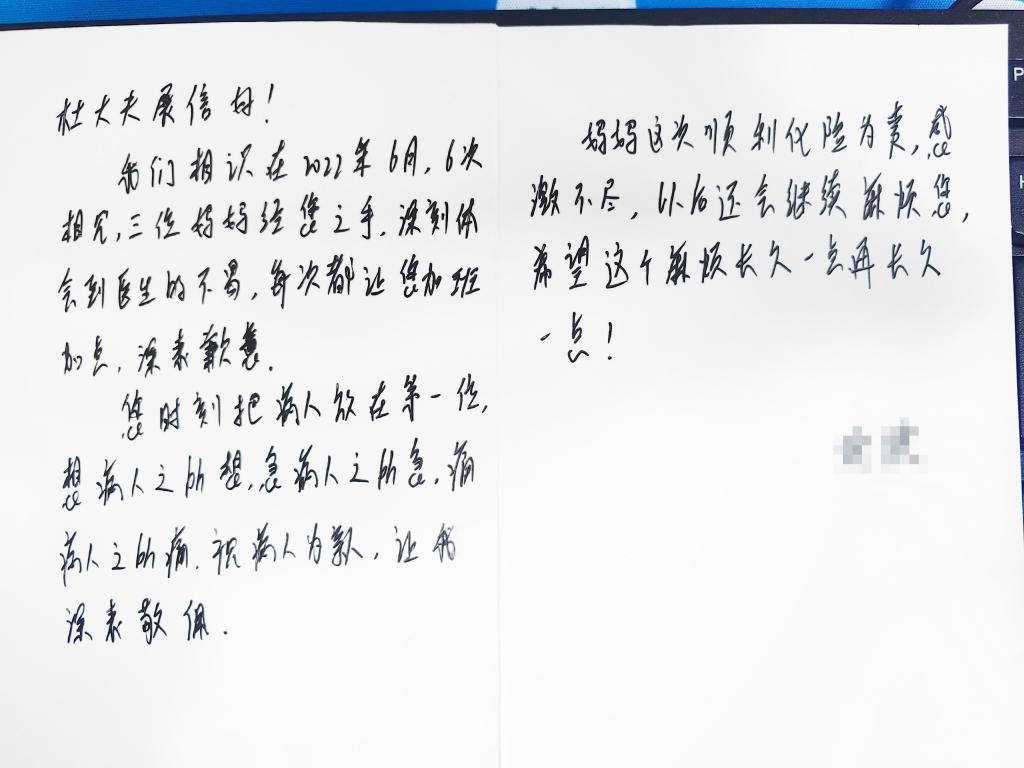 杜大夫展信好！
我们相识在2022年6月，6次
相见，三位妈妈经您之手，深刻体
会到医生的不易，每次都让您加班
加点，深表歉意．
您时刻把病人放在第一位，
想病人之所想，急病人之所急，痛
病人之所痛．视病人为亲人，让我
深表敬佩．
妈妈这次顺利化险为夷，感
激不尽，以后还会继续麻烦您，
希望这个麻烦长久一点再长久
一点！
P
H